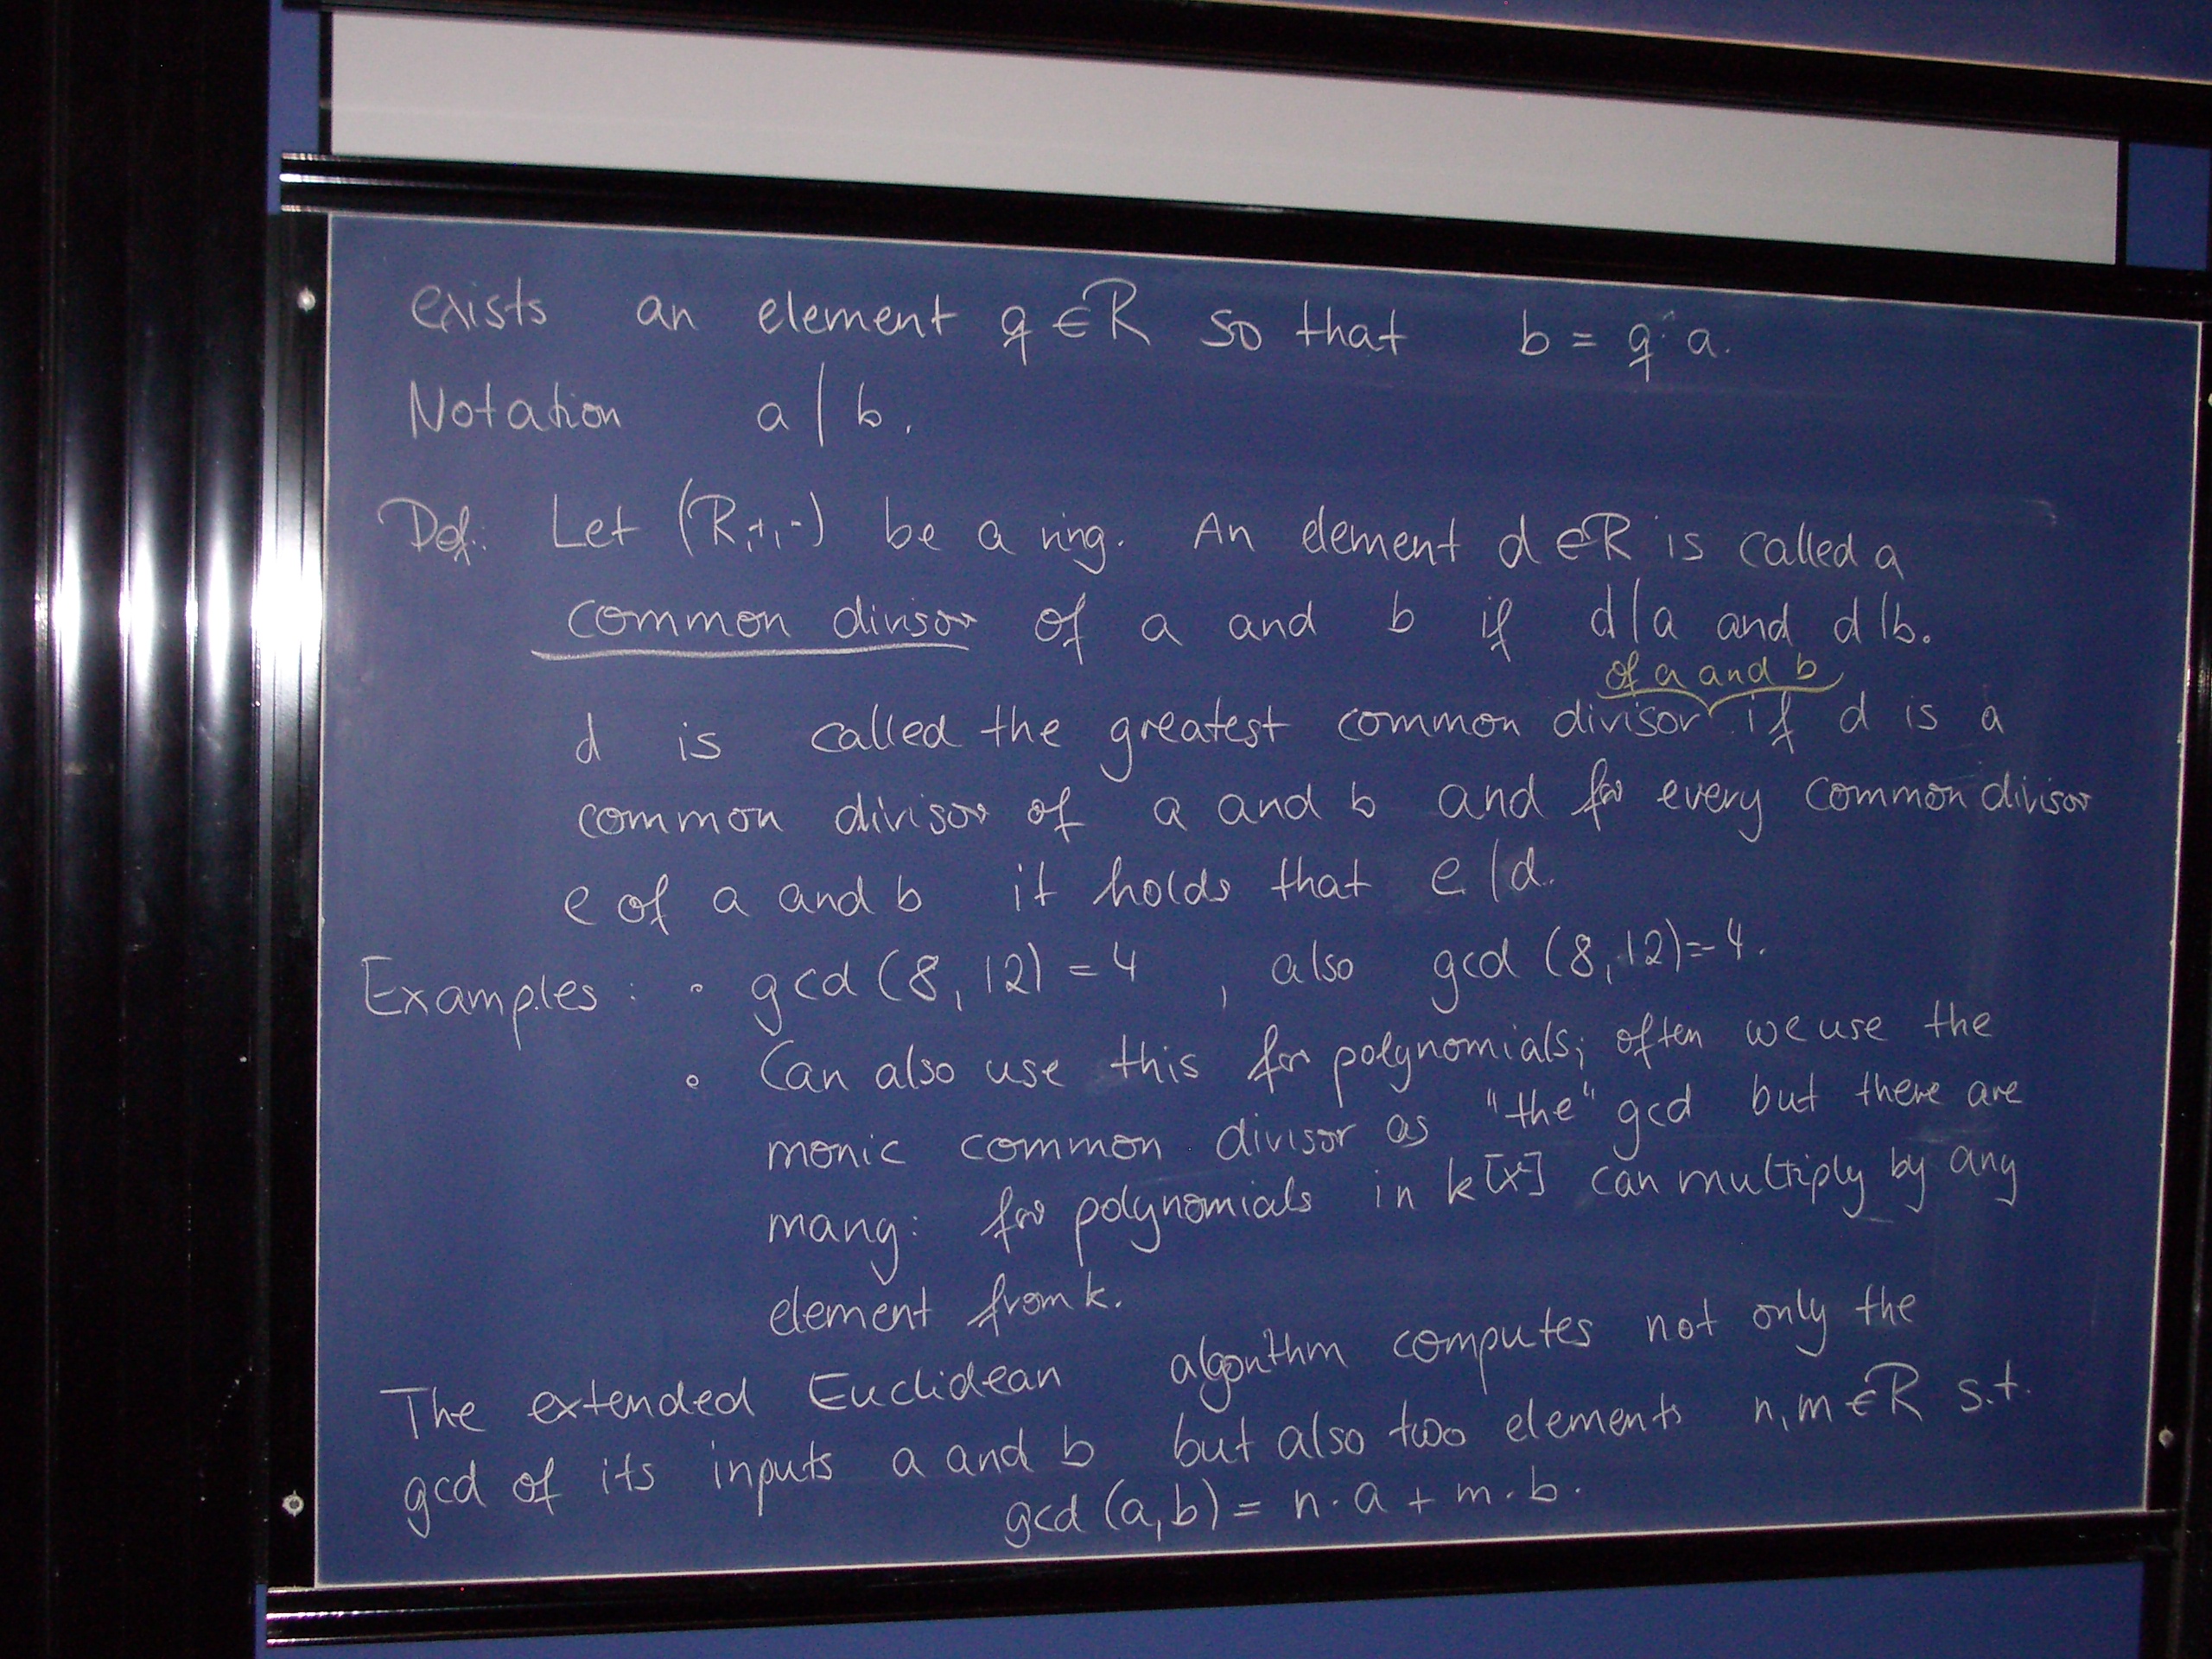 exists an element q ∈ R so that b = q · a.
Notation a | b.
Def.: Let (R,+,·) be a ring. An element d ∈ R is called a
common divisor of a and b if d|a and d|b.
of a and b
d is called the greatest common divisor if d is a
common divisor of a and b and for every common divisor
e of a and b it holds that e | d.
Examples: ∘ gcd (8, 12) = 4, also gcd (8, 12) = -4.
∘ Can also use this for polynomials; often we use the
monic common divisor as "the" gcd but there are
many: for polynomials in k[x] can multiply by any
element from k.
The extended Euclidean algorithm computes not only the
gcd of its inputs a and b but also two elements n, m ∈ R s.t.
gcd (a, b) = n · a + m · b.